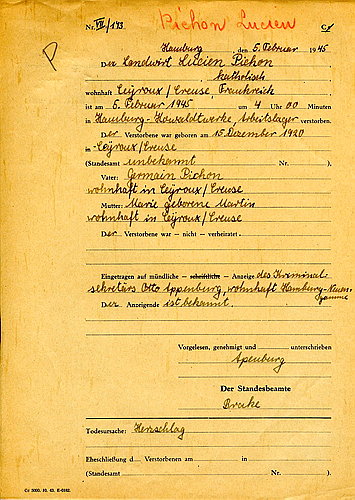 Nr. VII/143 Pichon Lucien C1
P
Hamburg, den 5. Februar 1945
Der Landwirt Lucien Pichon
, katholisch
wohnhaft Ceyroux/Creuse, Frankreich
ist am 5. Februar 1945 um 4 Uhr 00 Minuten
in Hamburg-Howaldtwerke, Arbeitslager verstorben.
Der Verstorbene war geboren am 15. Dezember 1920
in Ceyroux/Creuse
(Standesamt unbekannt Nr. )
Vater: Germain Pichon
wohnhaft in Ceyroux/Creuse
Mutter: Marie geborene Martin
wohnhaft in Ceyroux/Creuse
Der Verstorbene war — nicht — verheiratet.
Eingetragen auf mündliche — schriftliche — Anzeige des Kriminal-
sekretärs Otto Appenburg, wohnhaft Hamburg-Neuen-
gamme
Der Anzeigende ist bekannt.
Vorgelesen, genehmigt und unterschrieben
Apenburg
Der Standesbeamte
Brake
Todesursache: Herzschlag
Eheschließung d Verstorbenen am in
(Standesamt Nr. ).
Cr 5000. 10. 43. E-0162.